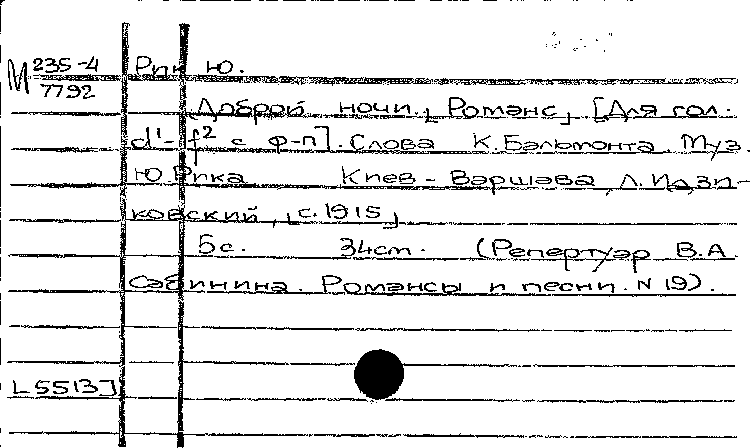 М 235-4 Рик Ю.
7792
Доброй ночи. [Романс] [Для гол.
d¹-f² с ф-п]. Слова К. Бальмонта. Муз.
Ю. Рика Киев - Варшава, Л. Идзи-
ковский, [с. 1915]
5с. 34см. (Репертуар В.А.
Сабинина. Романсы и песни. N 19).
[5513]